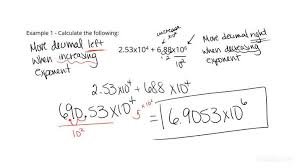 Example 1 - Calculate the following:
More decimal left
when increasing
exponent
increase
2.53x10⁴ + 6.88x10⁶
10²
More decimal right
when decreasing
exponent
2.53 x10⁴ + 688 x10⁴
690.53x10⁴
10²
= 6.9053x10⁶